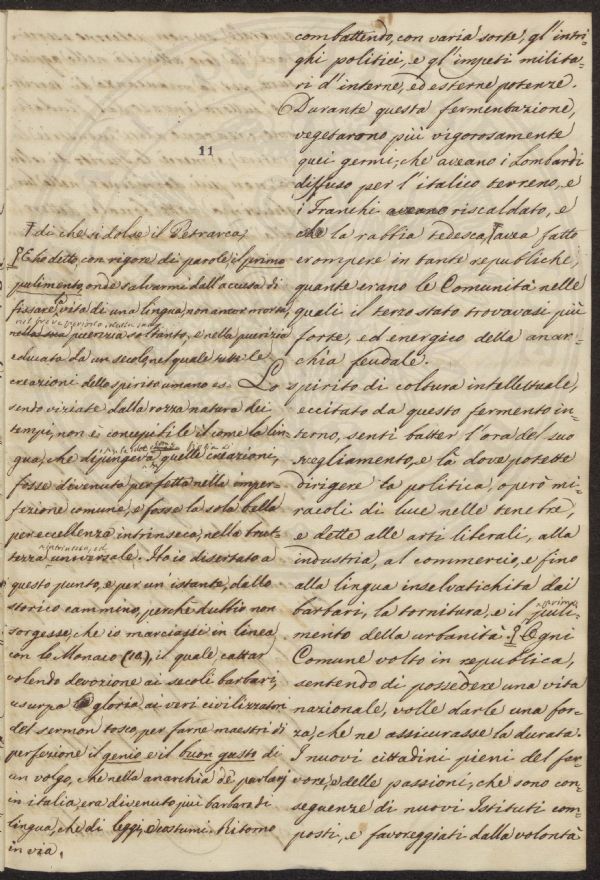 11
combattendo, con varia sorte, gl'intri-
ghi politici, e gl'impeti milita-
ri d'interne, ed esterne potenze.
Durante questa fermentazione,
vegetarono più vigorosamente
quei germi, che aveano i Lombardi
diffuso per l'italico terreno, e
i Franchi aveano riscaldato, e
che la rabbia tedesca, avea fatto
erompere in tante republiche,
quante erano le Comunità nelle
quali il terzo stato trovavasi più
forte, ed energico della anar-
chia feudale.
Lo spirito di coltura intellettuale,
eccitato da questo fermento in-
terno, sentì batter l'ora del suo
svegliamento, e là dove potette
dirigere la politica, operò mi-
racoli di luce nelle tenebre,
e dette alle arti liberali, alla
industria, al commercio, e fino
alla lingua inselvatichita dai
barbari, la tornitura, e il primo puli-
mento della urbanità. Ogni
Comune volto in republica,
sentendo di possedere una vita
nazionale, volle darle una for-
za, che ne assicurasse la durata.
I nuovi cittadini pieni del fer-
vore, e delle passioni, che sono con-
seguenze di nuovi Istituti com-
posti, e favoreggiati dalla volontà
di che si dolse il Petrarca,
E ho detto, con rigore di parole, il primo
pulimento, onde salvarmi dall'accusa di
fissare la vita di una lingua, non ancor morta,
nella sua puerizia soltanto, e nella puerizia
educata da un secolo, nel quale tutte le
creazioni dello spirito umano es-
sendo viziate dalla rozza natura dei
tempi, non è concepibile il come la lin-
gua, che dipingeva quelle creazioni,
fosse divenuta perfetta nella imper-
fezione comune, e fosse la sola bella
per eccellenza intrinseca, nella brut-
tezza intrinseca, ed universale. Ho io disertato a
questo punto, e per un'istante, dallo
storico cammino, perchè dubbio non
sorgesse, che io marciassi in linea
con lo Monaco (10), il quale cattar
volendo devozione ai secoli barbari,
usurpa gloria ai veri civilizzatori
del sermon tosco, per farne maestri di
perfezione il genio e il buon gusto di
un volgo, che nella anarchia de' parlari
in italia, era divenuto più barbaro di
lingua, che di leggi, e costumi. Ritorno
in via.